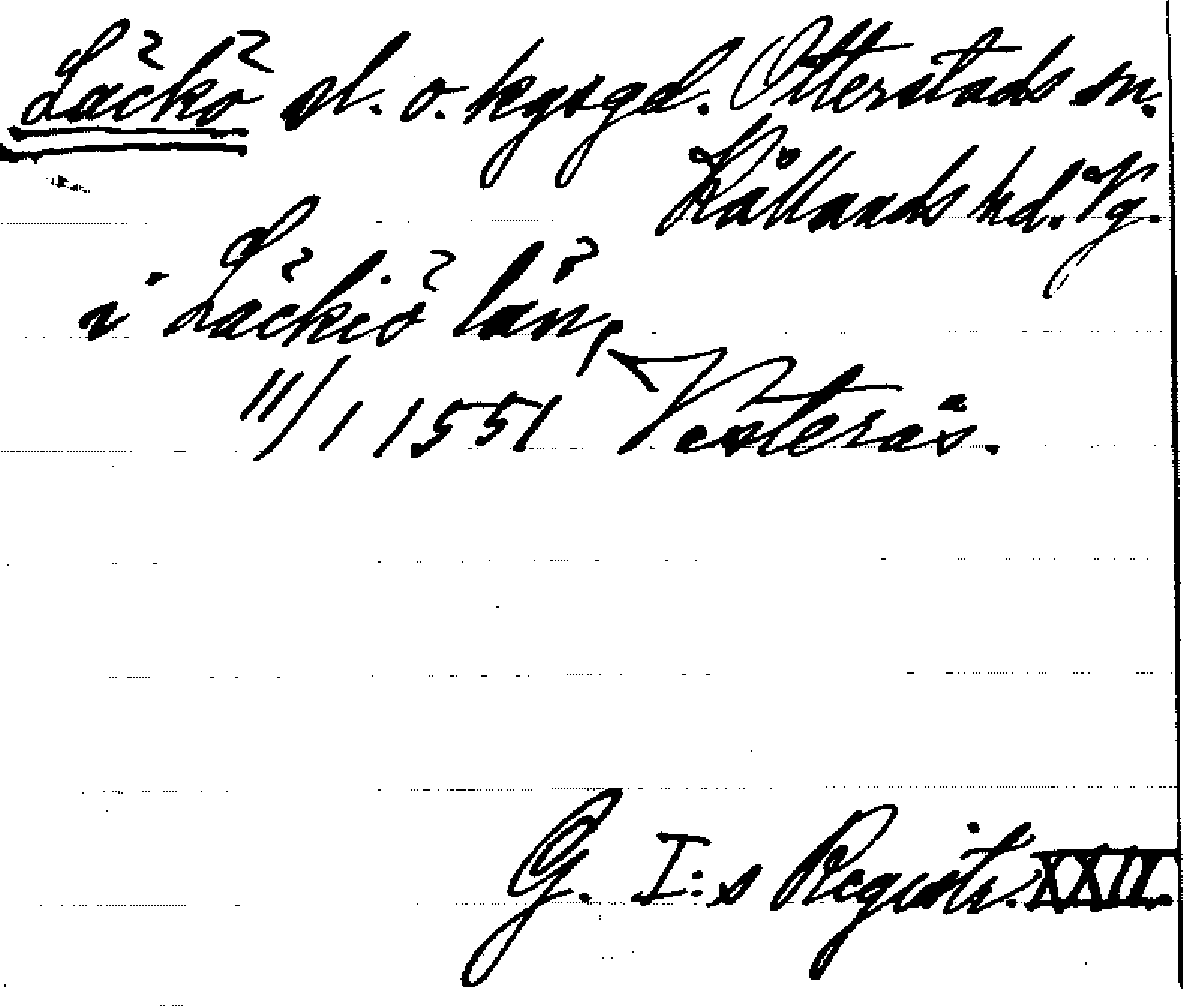 Läckö sl. o. kgsgd. Otterstads sn.
Kållands hd. Vg.
i Läckiö län,
11/1 1551 Vesterås.
G. I:s Registr. XXII.